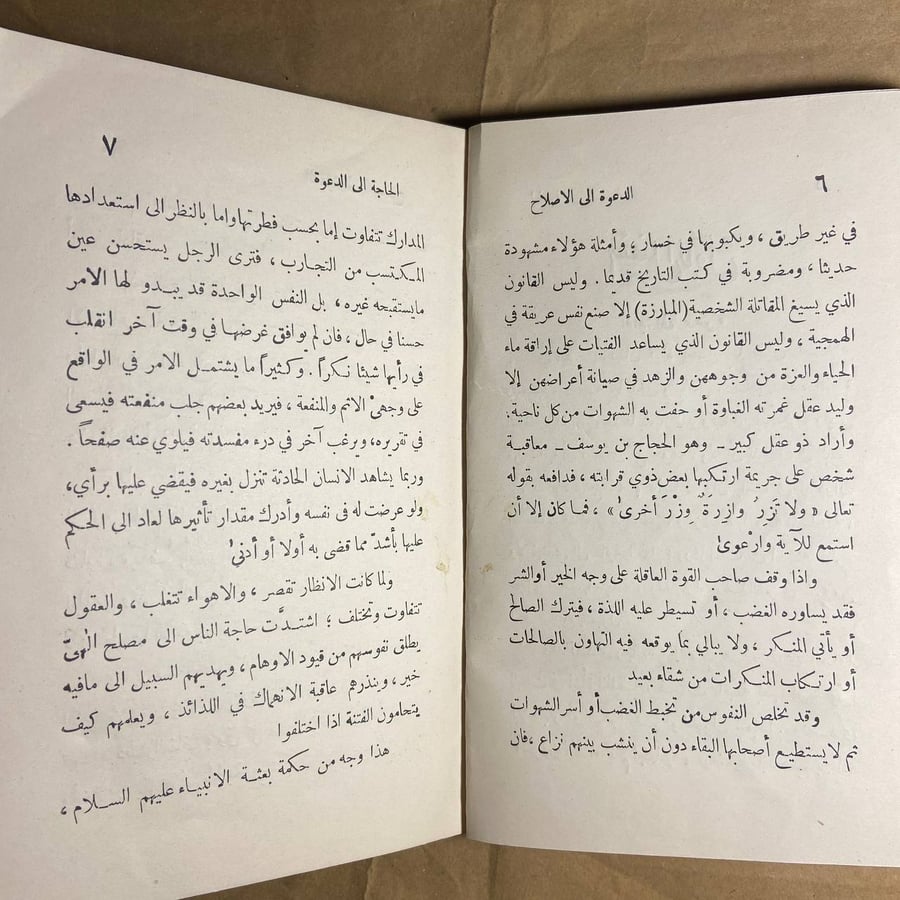 ٦
الدعوة الى الاصلاح
في غير طريق ، ويكبو بها في خسار ؛ وأمثلة هؤلاء مشهودة
حديثا ، ومضروبة في كتب التاريخ قديما . وليس القانون
الذي يسيغ المقاتلة الشخصية (المبارزة) إلا صنع نفس عريقة في
الهمجية ، وليس القانون الذي يساعد الفتيات على إراقة ماء
الحياء والعزة من وجوههن والزهد في صيانة أعراضهن إلا
وليد عقل غمرته الغباوة أو حفت به الشهوات من كل ناحية .
وأراد ذو عقل كبير ــ وهو الحجاج بن يوسف ــ معاقبة
شخص على جريمة ارتكبها بعض ذوي قرابته ، فدافعه بقوله
تعالى « ولا تَزِرُ وازِرَةٌ وِزْرَ أخرىٰ » ، فما كان إلا أن
استمع للآية وارْعوىٰ
واذا وقف صاحب القوة العاقلة على وجه الخير أو الشر
فقد يساوره الغضب ، أو تسيطر عليه اللذة ، فيترك الصالح
أو يأتي المنكر ، ولا يبالي بما يوقعه فيه التهاون بالصالحات
أو ارتكاب المنكرات من شقاء بعيد
وقد تخلص النفوس من تخبط الغضب أو أسر الشهوات
ثم لا يستطيع أصحابها البقاء دون أن ينشب بينهم نزاع ، فان
٧
الحاجة الى الدعوة
المدارك تتفاوت إما بحسب فطرتها واما بالنظر الى استعدادها
المكتسب من التجارب ، فترى الرجل يستحسن عين
مايستقبحه غيره ، بل النفس الواحدة قد يبدو لها الامر
حسنا في حال ، فان لم يوافق غرضها في وقت آخر انقلب
في رأيها شيئا نكراً . وكثيراً ما يشتمل الامر في الواقع
على وجهىْ الاثم والمنفعة ، فيريد بعضهم جلب منفعته فيسعى
في تقريره ، ويرغب آخر في درء مفسدته فيلوي عنه صفحاً .
وربما يشاهد الانسان الحادثة تنزل بغيره فيقضي عليها برأي ،
ولو عرضت له في نفسه وأدرك مقدار تأثيرها لعاد الى الحكم
عليها بأشدّ مما قضى به أولا أو أدنىٰ
ولما كانت الانظار تقصر ، والاهواء تتغلب ، والعقول
تتفاوت وتختلف ؛ اشتدَّت حاجة الناس الى مصلح إلٰهيّ
يطلق نفوسهم من قيود الاوهام ، ويهديهم السبيل الى مافيه
خير ، وينذرهم عاقبة الانهماك في اللذائذ ، ويعلمهم كيف
يتحامون الفتنة اذا اختلفوا
هذا وجه من حكمة بعثة الانبياء عليهم السلام ،